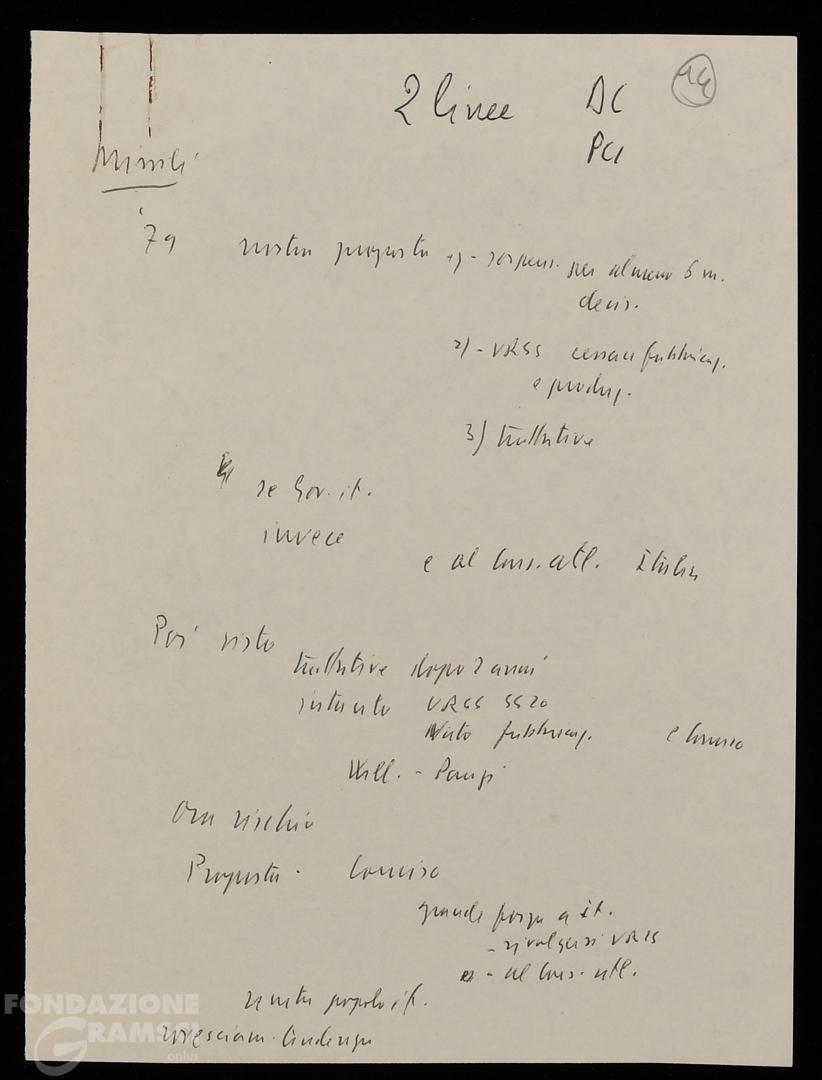 2 linee DC 14
PCI
Missili
'79 nostra proposta 1) - sospens. per almeno 6 m.
decis.
2) - URSS cessare fabbricaz.
e produz.
3) trattative
se Gov. it.
invece
e al Cons. atl. Italia
Poi visto
trattative dopo 2 anni
intanto URSS SS20
Nato fabbricaz. e Comiso
- Parigi
Ora rischio
Proposta - Comiso
grande forza a It.
- rivolgersi URSS
- al Cons. atl.
unità popolo it.
FONDAZIONE
GRAMSCI
onlus